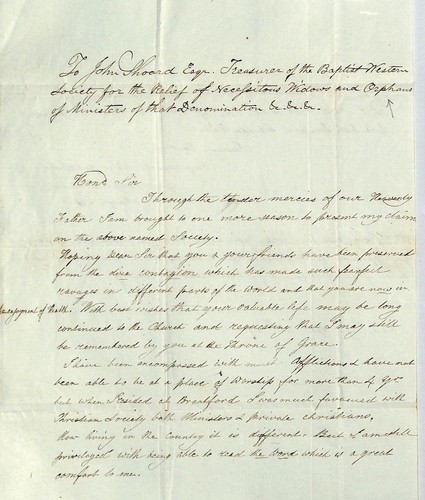 To John Shoard Esqr. Treasurer of the Baptist Western
Society for the Relief of Necessitous Widows and Orphans
of Ministers of that Denomination &.&.&.
Hond Sir
Through the tender mercies of our Heavenly
Father I am brought to one more season to present my claim
on the above named Society.
Hoping Dear Sir that you & your friends have been preserved
from the dire contagion which has made such fearful
ravages in different parts of the World and that you are now in
the enjoyment of Health. With best wishes that your valuable life may be long
continued to the Church and requesting that I may still
be remembered by you at the Throne of Grace.
I have been encompassed with much Afflictions & have not
been able to be at a place of Worship for more than 4 yrs
but when I resided at Bradford I was much favoured with
Christian Society both Ministers & private christians,
Now living in the Country it is different. But I am still
privileged with being able to read the word which is a great
comfort to me.